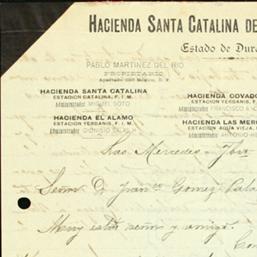 HACIENDA SANTA CATALINA DE
Estado de Dura
PABLO MARTINEZ DEL RIO
PROPIETARIO
HACIENDA SANTA CATALINA
ESTACION CATALINA, F. I. M.
Administrador MIGUEL SOTO
HACIENDA COVADO
ESTACION YERBANIS, F
Administrador FRANCISCO A
HACIENDA EL ALAMO
ESTACION YERBANIS, F. I. M.
Administrador DIONISIO
HACIENDA LAS MERC
ESTACION AGUA VIEJA,
Administrador ANTONIO
Las Mercedes
Señor D. Fran^co Gomez Pala
Muy estdo señor y amigo.